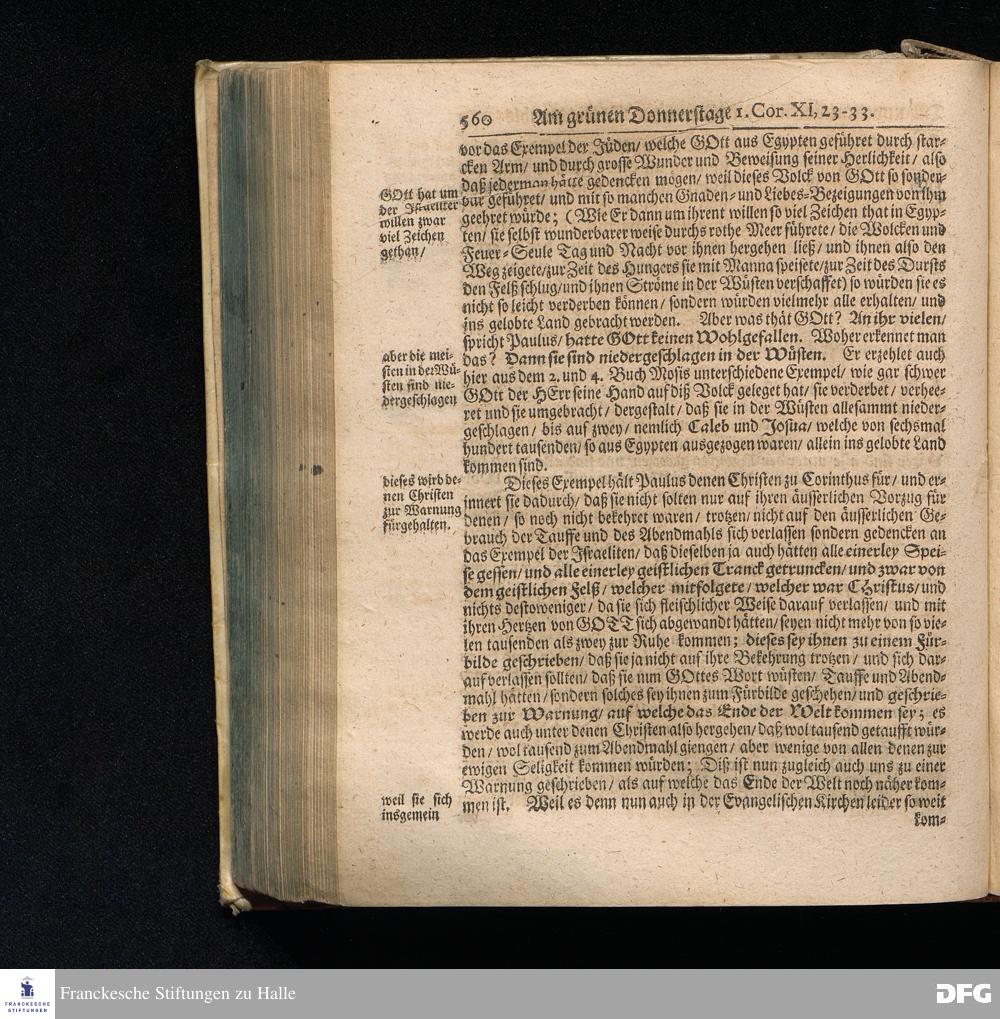 560 Am grünen Donnerstage 1. Cor. XI, 23-33.
vor das Exempel der Jüden/ welche GOtt aus Egypten geführet durch star-
cken Arm/ und durch grosse Wunder und Beweisung seiner Herlichkeit/ also
daß jederman hätte gedencken mögen/ weil dieses Volck von GOtt so sonder-
bar geführet/ und mit so manchen Gnaden- und Liebes-Bezeigungen von Ihm
geehret würde; (Wie Er dann um ihrent willen so viel Zeichen that in Egyp-
ten/ sie selbst wunderbarer weise durchs rothe Meer führete/ die Wolcken und
Feuer-Seule Tag und Nacht vor ihnen hergehen ließ/ und ihnen also den
Weg zeigete/ zur Zeit des Hungers sie mit Manna speisete/ zur Zeit des Dursts
den Felß schlug/ und ihnen Ströme in der Wüsten verschaffet) so würden sie es
nicht so leicht verderben können/ sondern würden vielmehr alle erhalten/ und
ins gelobte Land gebracht werden. Aber was thät GOtt? An ihr vielen/
spricht Paulus/ hatte GOtt keinen Wohlgefallen. Woher erkennet man
das? Dann sie sind niedergeschlagen in der Wüsten. Er erzehlet auch
hier aus dem 2. und 4. Buch Mosis unterschiedene Exempel/ wie gar schwer
GOtt der HErr seine Hand auf diß Volck geleget hat/ sie verderbet/ verhee-
ret und sie umgebracht/ dergestalt/ daß sie in der Wüsten allesammt nieder-
geschlagen/ bis auf zwey/ nemlich Caleb und Josua/ welche von sechsmal
hundert tausenden/ so aus Egypten ausgezogen waren/ allein ins gelobte Land
kommen sind.
Dieses Exempel hält Paulus denen Christen zu Corinthus für/ und er-
innert sie dadurch/ daß sie nicht solten nur auf ihren äusserlichen Vorzug für
denen/ so noch nicht bekehret waren/ trotzen/ nicht auf den äusserlichen Ge-
brauch der Tauffe und des Abendmahls sich verlassen sondern gedencken an
das Exempel der Israeliten/ daß dieselben ja auch hätten alle einerley Spei-
se gessen/ und alle einerley geistlichen Tranck getruncken/ und zwar von
dem geistlichen Felß/ welcher mitfolgete/ welcher war CHristus/ und
nichts destoweniger/ da sie sich fleischlicher Weise darauf verlassen/ und mit
ihren Hertzen von GOTT sich abgewandt hätten/ seyen nicht mehr von so vie-
len tausenden als zwey zur Ruhe kommen; dieses sey ihnen zu einem Für-
bilde geschrieben/ daß sie ja nicht auf ihre Bekehrung trotzen/ und sich dar-
auf verlassen sollten/ daß sie nun GOttes Wort wüsten/ Tauffe und Abend-
mahl hätten/ sondern solches sey ihnen zum Fürbilde geschehen/ und geschrie-
ben zur Warnung/ auf welche das Ende der Welt kommen sey; es
werde auch unter denen Christen also hergehen/ daß wol tausend getaufft wür-
den/ wol tausend zum Abendmahl giengen/ aber wenige von allen denen zur
ewigen Seligkeit kommen würden; Diß ist nun zugleich auch uns zu einer
Warnung geschrieben/ als auf welche das Ende der Welt noch näher kom-
men ist. Weil es denn nun auch in der Evangelischen Kirchen leider so weit
kom-
GOtt hat um
der Israeliter
willen zwar
viel Zeichen
gethan/
aber die mei-
sten in der Wü-
sten sind nie-
dergeschlagen
dieses wird de-
nen Christen
zur Warnung
fürgehalten.
weil sie sich
insgemein
FRANCKESCHE
STIFTUNGEN
Franckesche Stiftungen zu Halle
DFG